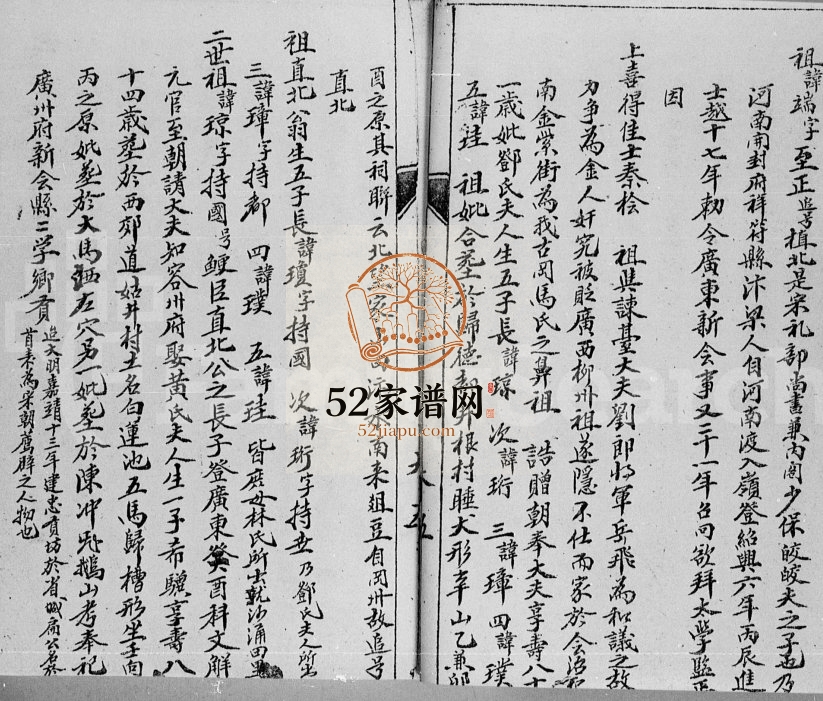 祖諱端字至正追号植北是宋礼部尚書兼内阁少保皎皎夫之子也乃
河南開封府祥符縣汴梁人自河南渡入嶺登紹興六年丙辰進
士越十七年勅令廣東新会事又二十一年召回欲拜太学監正
因
上喜得佳士秦桧 祖與諫臺大夫劉郎将軍岳飛為和議之故
力争為金人奸宄被貶廣西柳州祖遂隱不仕而家於会沿
南金紫街為我古冈馬氏之鼻祖 誥贈朝奉大夫享壽八十
一歲妣鄧氏夫人生五子長諱琼 次諱珩 三諱璋 四諱璞
五諱珪 祖妣合塟於歸德 根村睡犬形辛山乙兼卯
酉之原其祠聯云北 家 南来俎豆自冈州故追号
直北
祖直北翁生五子長諱瓊字持國 次諱珩字持世乃鄧氏夫人所出
三諱璋字持都 四諱璞 五諱珪 皆庶母林氏所出就沙涌田里
二世祖諱琼字持國号鯁臣直北公之長子登廣東癸酉科文解
元官至朝請大夫知容州府娶黄氏夫人生一子希驥享壽八
十四歲塟於西郊道姑井村土名白蓮池五馬歸槽形坐壬向
丙之原妣塟於大馬 左穴另一妣塟於陳冲 鵝山考奉祀
廣州府新会縣二学鄉贡
追大明嘉靖十三年建忠贡坊於省城 公名於
首来為宋朝薦解之人物也
五
52家谱网
52jiapu.com